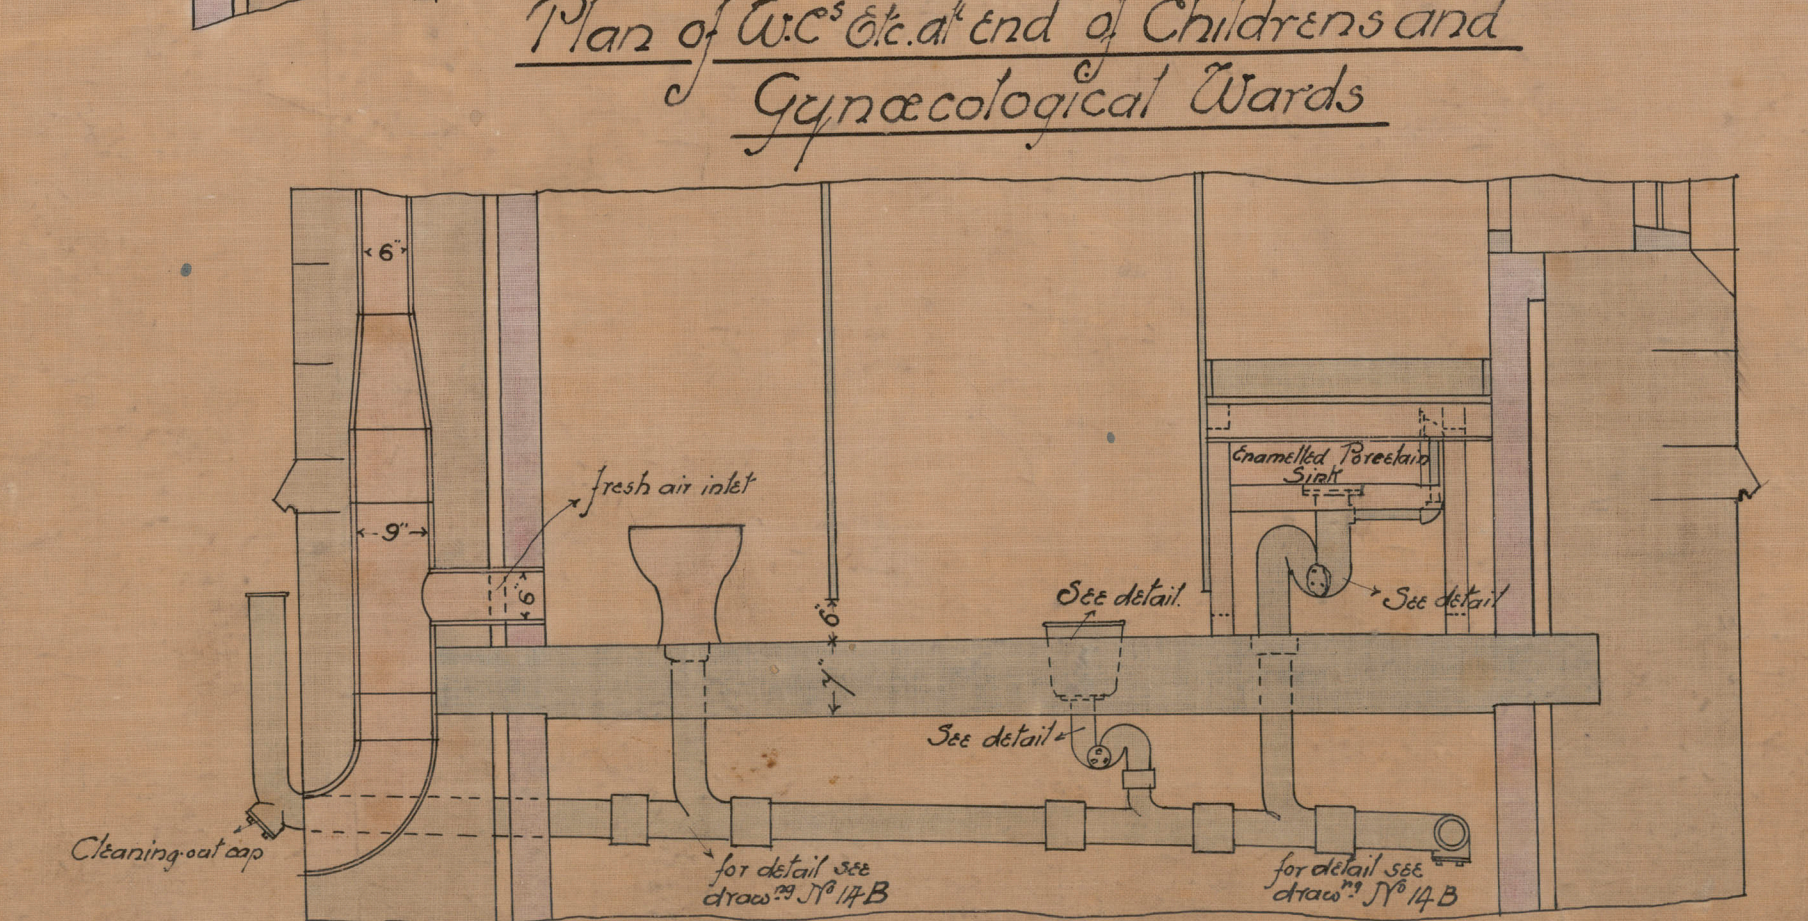 Plan of W.Cs Etc. at End of Childrens and
Gynæcological Wards
6"
Enamelled Porcelain
Sink
fresh air inlet
9"
6"
See detail.
See detail
6"
See detail
Cleaning-out cap
for detail see
drawng No 14B
for detail see
drawng No 14B